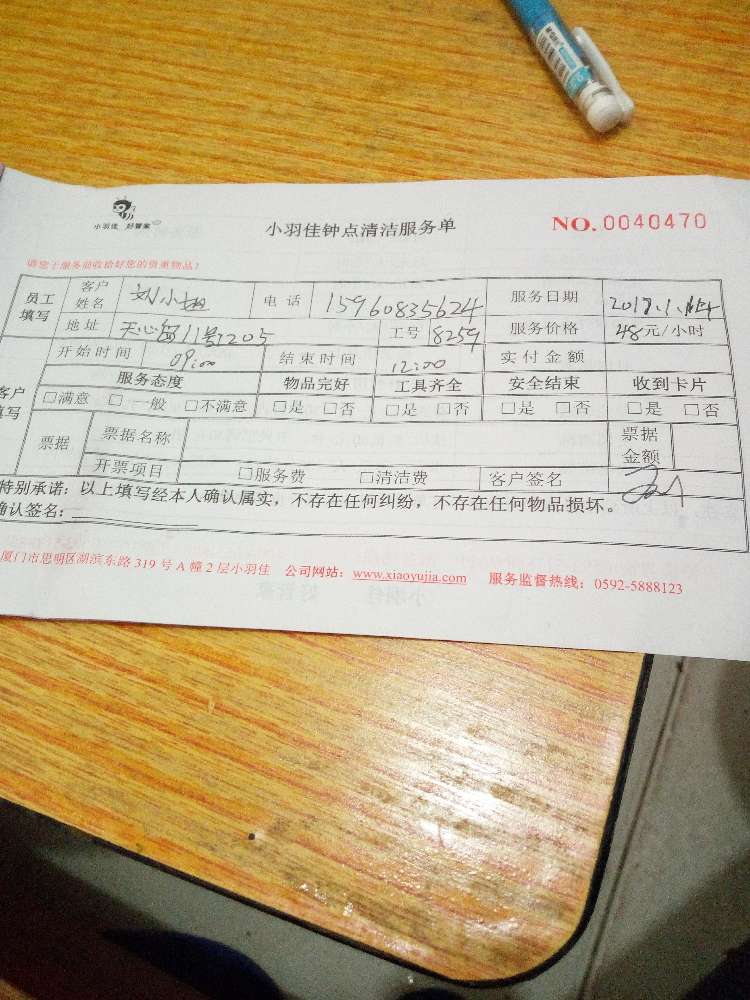 小羽佳 好管家
小羽佳钟点清洁服务单
NO.0040470
请您于服务前收拾好您的贵重物品!
员工填写 客户姓名 刘小姐 电话 15960835624 服务日期 2017.1.
地址 天心岛11号1205 工号 8259 服务价格 48元/小时
开始时间 09:00 结束时间 12:00 实付金额
客户填写 服务态度 物品完好 工具齐全 安全结束 收到卡片
□满意 □一般 □不满意 □是 □否 □是 □否 □是 □否 □是 □否
票据 票据名称 票据金额
开票项目 □服务费 □清洁费 客户签名
特别承诺:以上填写经本人确认属实,不存在任何纠纷,不存在任何物品损坏。
确认签名:
厦门市思明区湖滨东路319号A幢2层小羽佳 公司网站:www.xiaoyujia.com 服务监督热线:0592-5888123